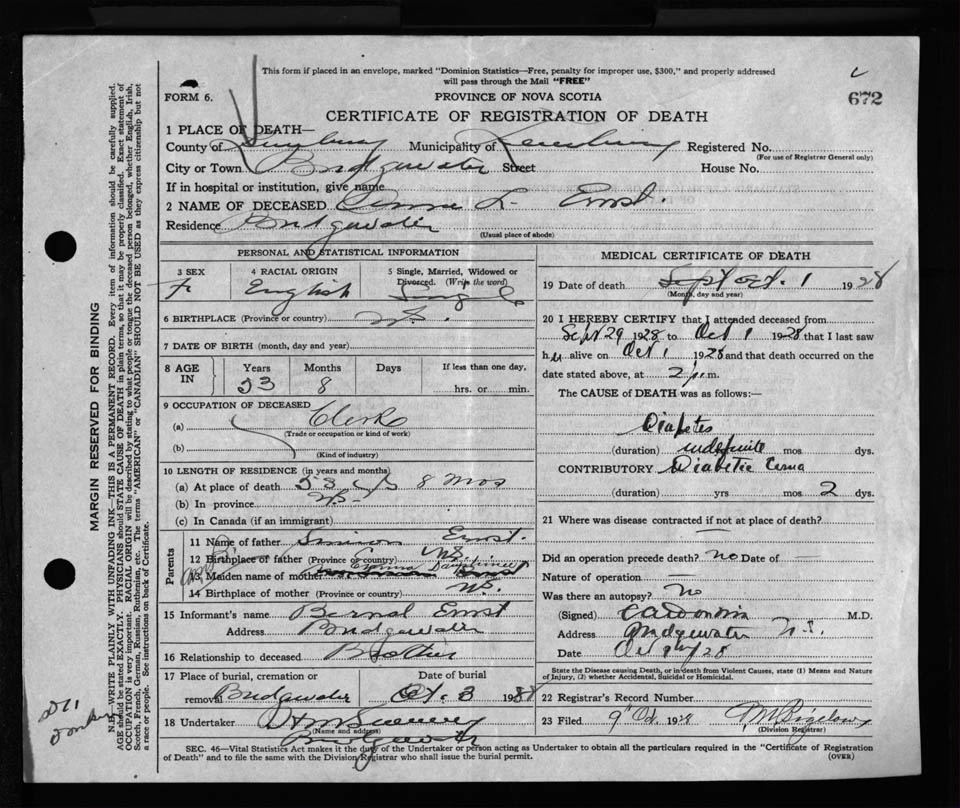 This form if placed in an envelope, marked "Dominion Statistics—Free, penalty for improper use, $300," and properly addressed
will pass through the Mail "FREE"
FORM 6.
PROVINCE OF NOVA SCOTIA
672
CERTIFICATE OF REGISTRATION OF DEATH
1 PLACE OF DEATH—
County of Lunenburg Municipality of Lunenburg Registered No.
(For use of Registrar General only)
City or Town Bridgewater Street House No.
If in hospital or institution, give name
2 NAME OF DECEASED L. Ernst.
Residence Bridgewater
(Usual place of abode)
PERSONAL AND STATISTICAL INFORMATION
3 SEX
F.
4 RACIAL ORIGIN
English
5 Single, Married, Widowed or
Divorced. (Write the word)
Single
6 BIRTHPLACE (Province or country) N.S.
7 DATE OF BIRTH (month, day and year)
8 AGE
IN
Years Months Days If less than one day,
53 8 hrs. or min.
9 OCCUPATION OF DECEASED
(a) Clerk
(Trade or occupation or kind of work)
(b)
(Kind of industry)
10 LENGTH OF RESIDENCE (in years and months)
(a) At place of death 53 8 mos
(b) In province
(c) In Canada (if an immigrant)
Parents
11 Name of father Simion Ernst.
12 Birthplace of father (Province or country) N.S.
13 Maiden name of mother
14 Birthplace of mother (Province or country) N.S.
15 Informant's name Bernal Ernst
Address Bridgewater
16 Relationship to deceased Brother
17 Place of burial, cremation or
removal Bridgewater
Date of burial
Oct. 3 1928
18 Undertaker
(Name and address)
Bridgewater
MEDICAL CERTIFICATE OF DEATH
19 Date of death Sept Oct. 1 1928
(Month, day and year)
20 I HEREBY CERTIFY that I attended deceased from
Sept 29 1928 to Oct 1 1928 that I last saw
her alive on Oct 1 1928 and that death occurred on the
date stated above, at 2 p.m.
The CAUSE of DEATH was as follows:—
Diabetes
(duration) indefinite mos dys.
CONTRIBUTORY Diabetic Coma
(duration) yrs mos 2 dys.
21 Where was disease contracted if not at place of death?
Did an operation precede death? no Date of
Nature of operation
Was there an autopsy? No
(Signed) M.D.
Address Bridgewater N.S.
Date Oct 28
State the Disease causing Death, or in death from Violent Causes, state (1) Means and Nature
of Injury, (2) whether Accidental, Suicidal or Homicidal.
22 Registrars Record Number
23 Filed 9 Oct. 1928 Bigelow
(Division Registrar)
SEC. 46—Vital Statistics Act makes it the duty of the Undertaker or person acting as Undertaker to obtain all the particulars required in the "Certificate of Registration
of Death" and to file the same with the Division Registrar who shall issue the burial permit.
(OVER)
MARGIN RESERVED FOR BINDING
N.B.—WRITE PLAINLY WITH UNFADING INK—THIS IS A PERMANENT RECORD. Every item of information should be carefully supplied.
AGE should be stated EXACTLY. PHYSICIANS should STATE CAUSE OF DEATH in plain terms, so that it may be properly classified. Exact statement of
OCCUPATION is very important. RACIAL ORIGIN will be described by stating to what people or tongue the deceased person belonged, whether English, Irish,
Scotch, French, German, Russian, Ruthenian, etc. The terms "AMERICAN" or "CANADIAN" SHOULD NOT BE USED as they express citizenship but not
a race or people. See instructions on back of Certificate.